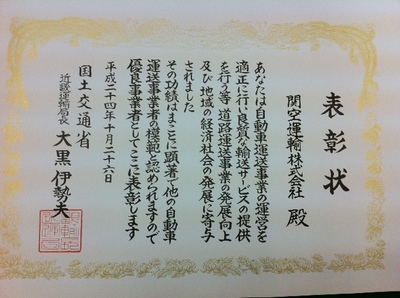 表彰状
関空運輸株式会社 殿
あなたは自動車運送事業の運営を
適正に行い良質な輸送サービスの提供
を行う等 道路運送事業の発展向上
及び地域の経済社会の発展に寄与
されました
その功績はまことに顕著で他の自動車
運送事業者の模範と認められますので
優良事業者としてここに表彰します
平成二十四年十月二十六日
国土交通省
近畿運輸局長 大黒伊勢夫